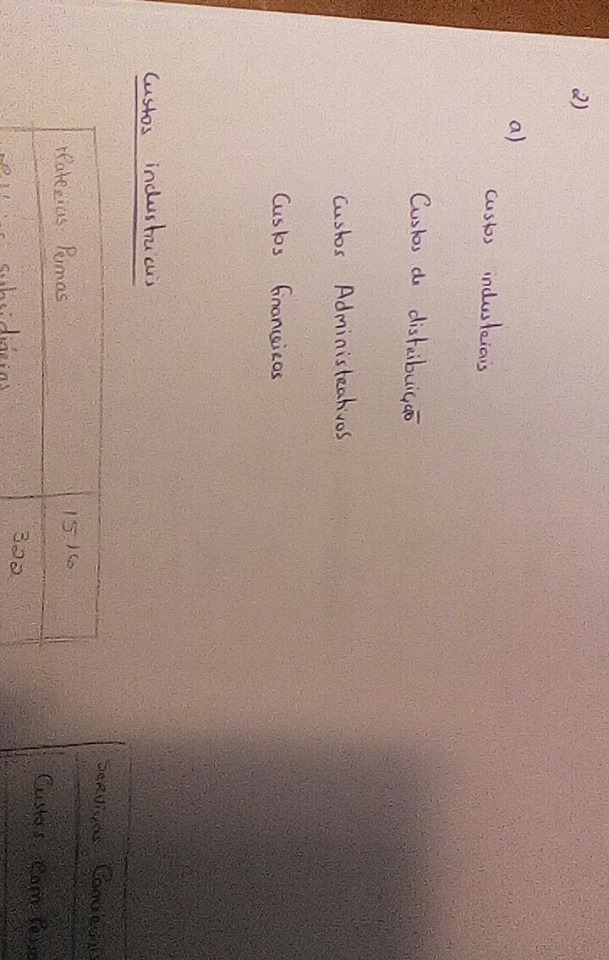 2)
a)
Custos industriais
Custos de distribuição
Custos Administrativos
Custos financeiros
Custos industriais
Materias Primas
subsidiárias 322
Serviços Comerciais
Custos com